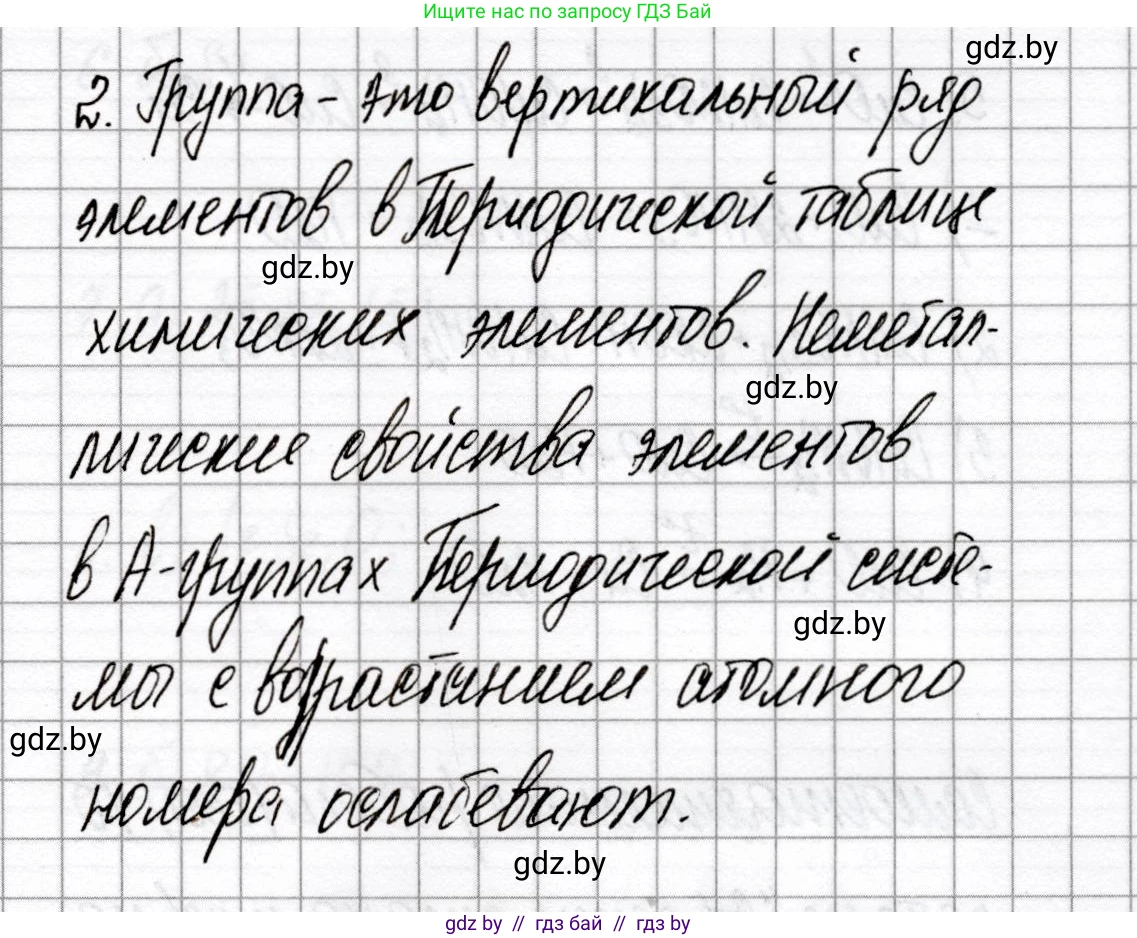 Ищите нас по запросу ГДЗ Бай
gdz.by
2. Группа - это вертикальный ряд
элементов в Периодической таблице
gdz.by
химических элементов. Неметал-
gdz.by
лические свойства элементов
в А-группах Периодической систе-
gdz.by
мы с возрастанием атомного
gdz.by
номера ослабевают.
gdz.by
gdz.by // гдз бай // гдз by